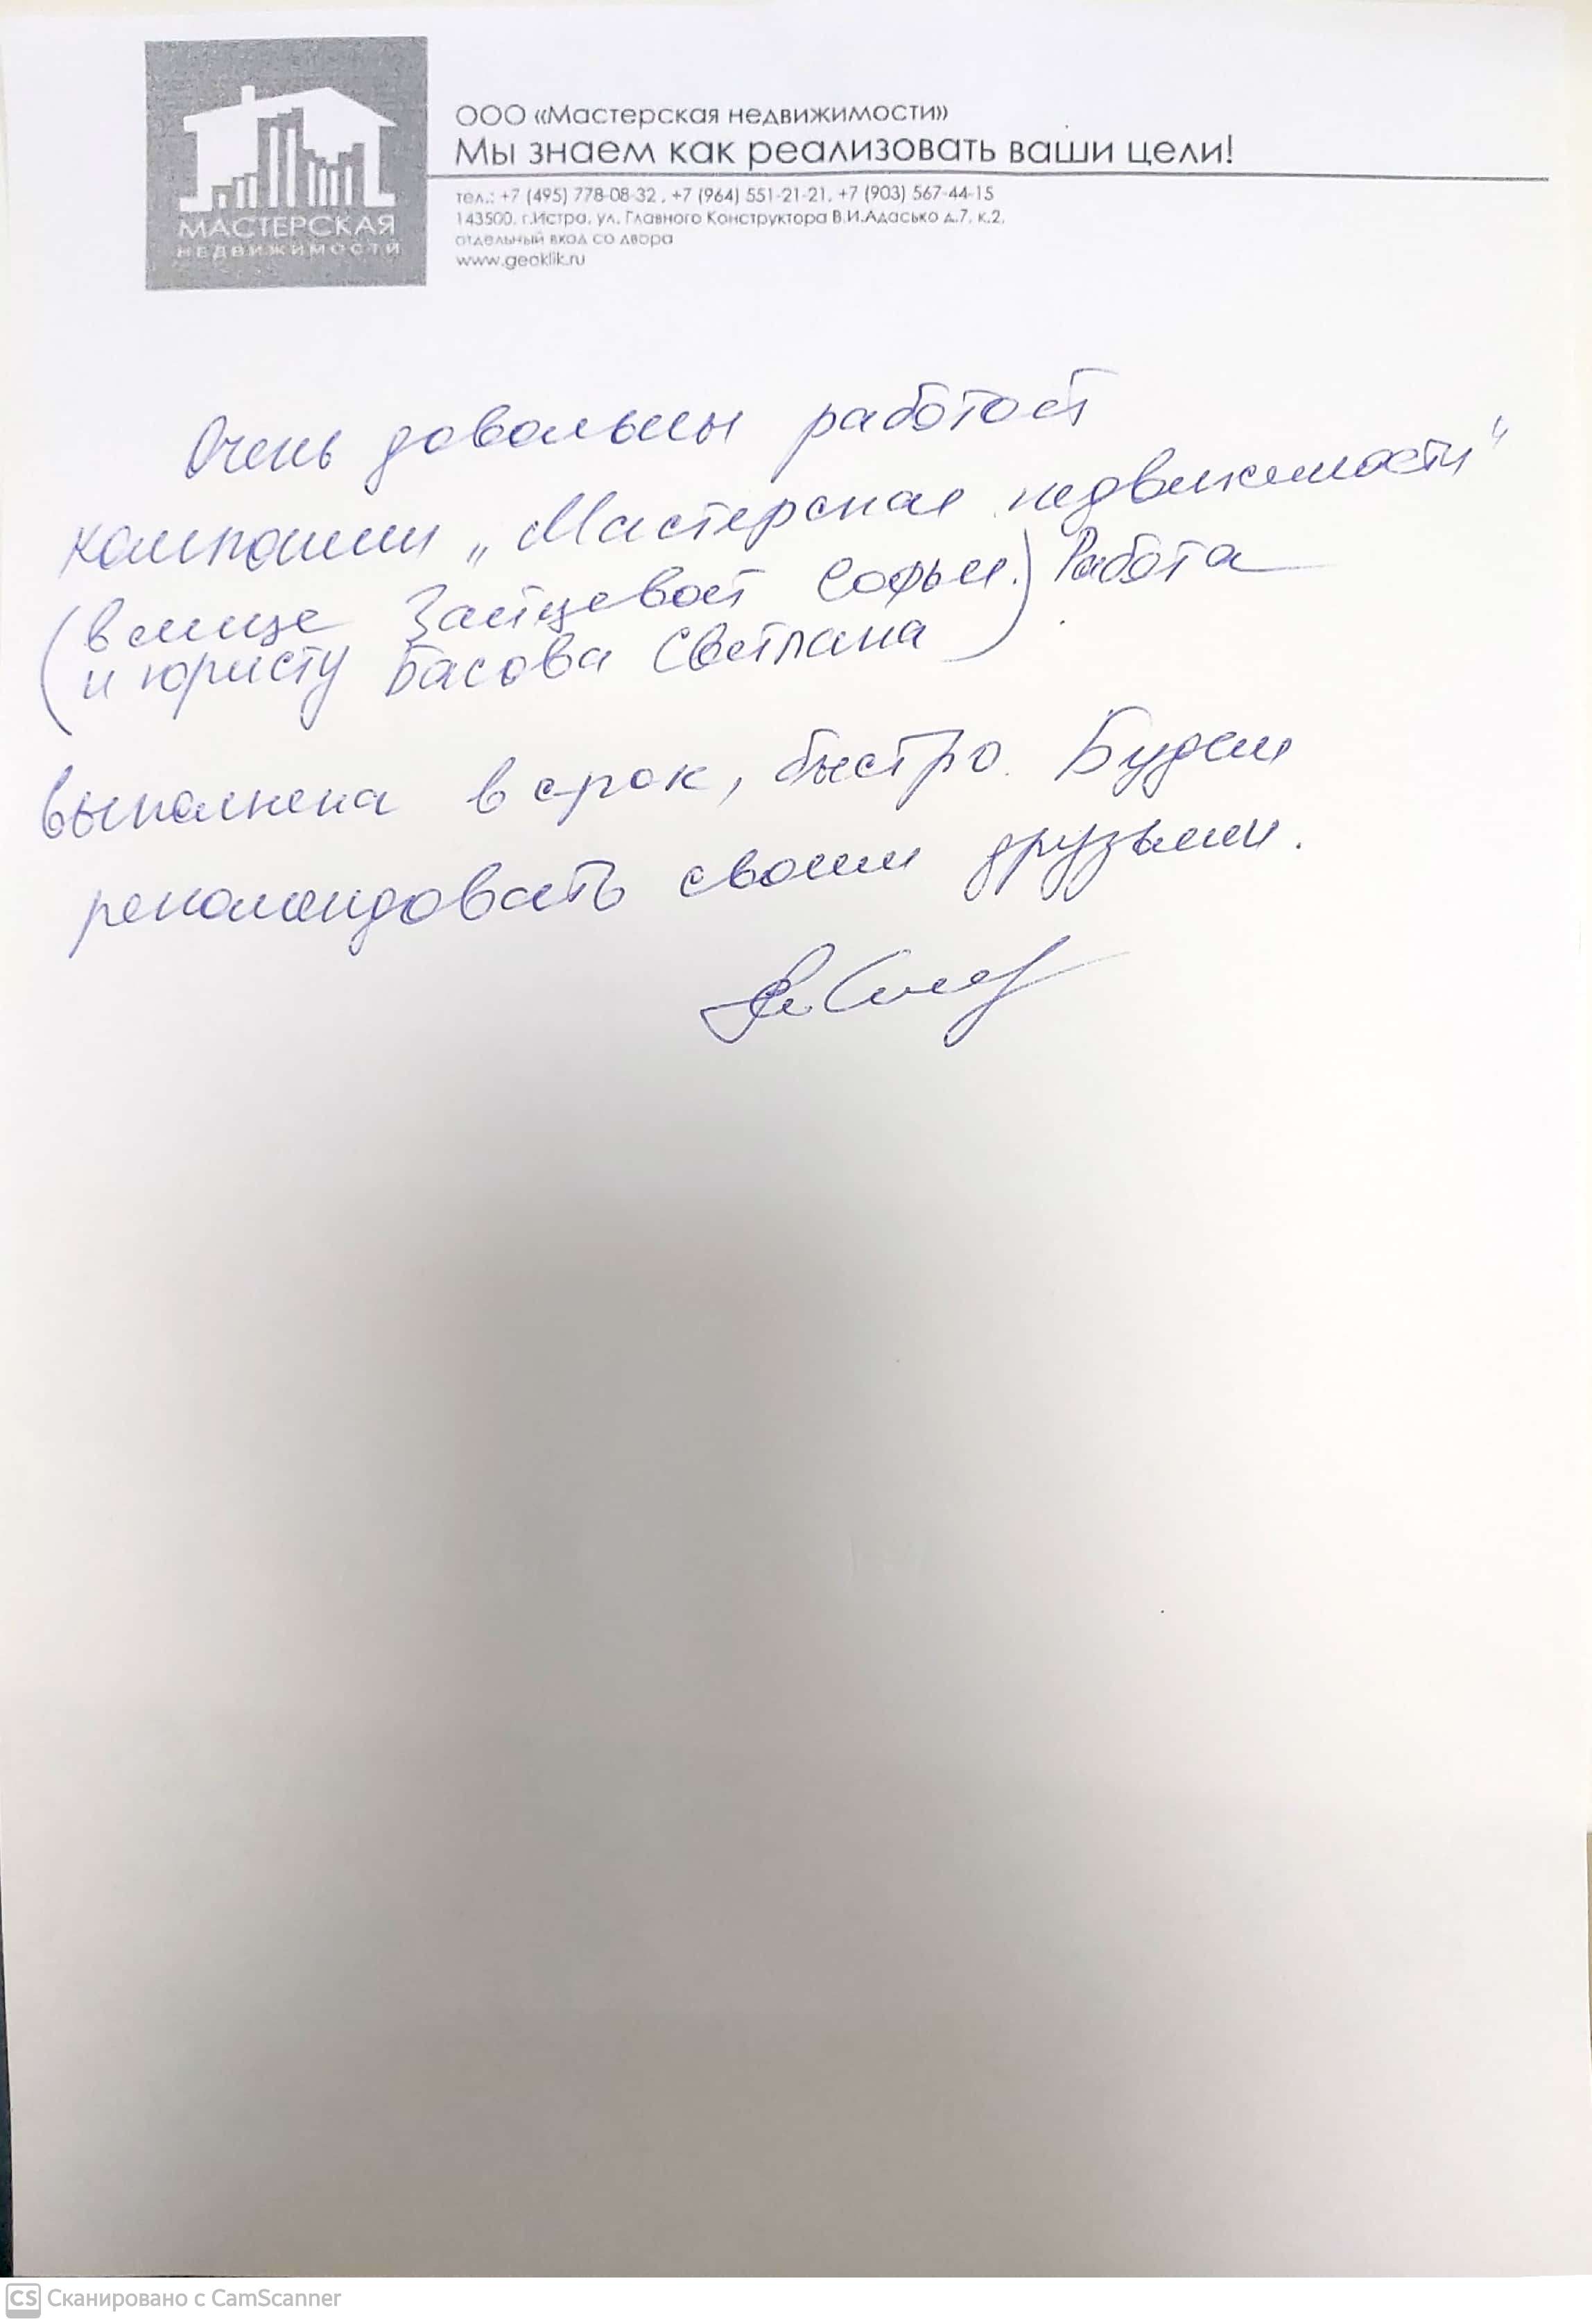 МАСТЕРСКАЯ
НЕДВИЖИМОСТИ
ООО «Мастерская недвижимости»
Мы знаем как реализовать ваши цели!
тел.: +7 (495) 778-08-32 , +7 (964) 551-21-21, +7 (903) 567-44-15
143500, г.Истра, ул. Главного Конструктора В.И.Адасько д.7, к.2,
отдельный вход со двора
www.geoklik.ru
Очень довольны работой
компании „Мастерская недвижимости"
(в лице Зайцевой Софьи.) Работа
и юристу Басова Светлана
выполнена в срок, быстро. Будем
рекомендовать своим друзьям.
CS Сканировано с CamScanner